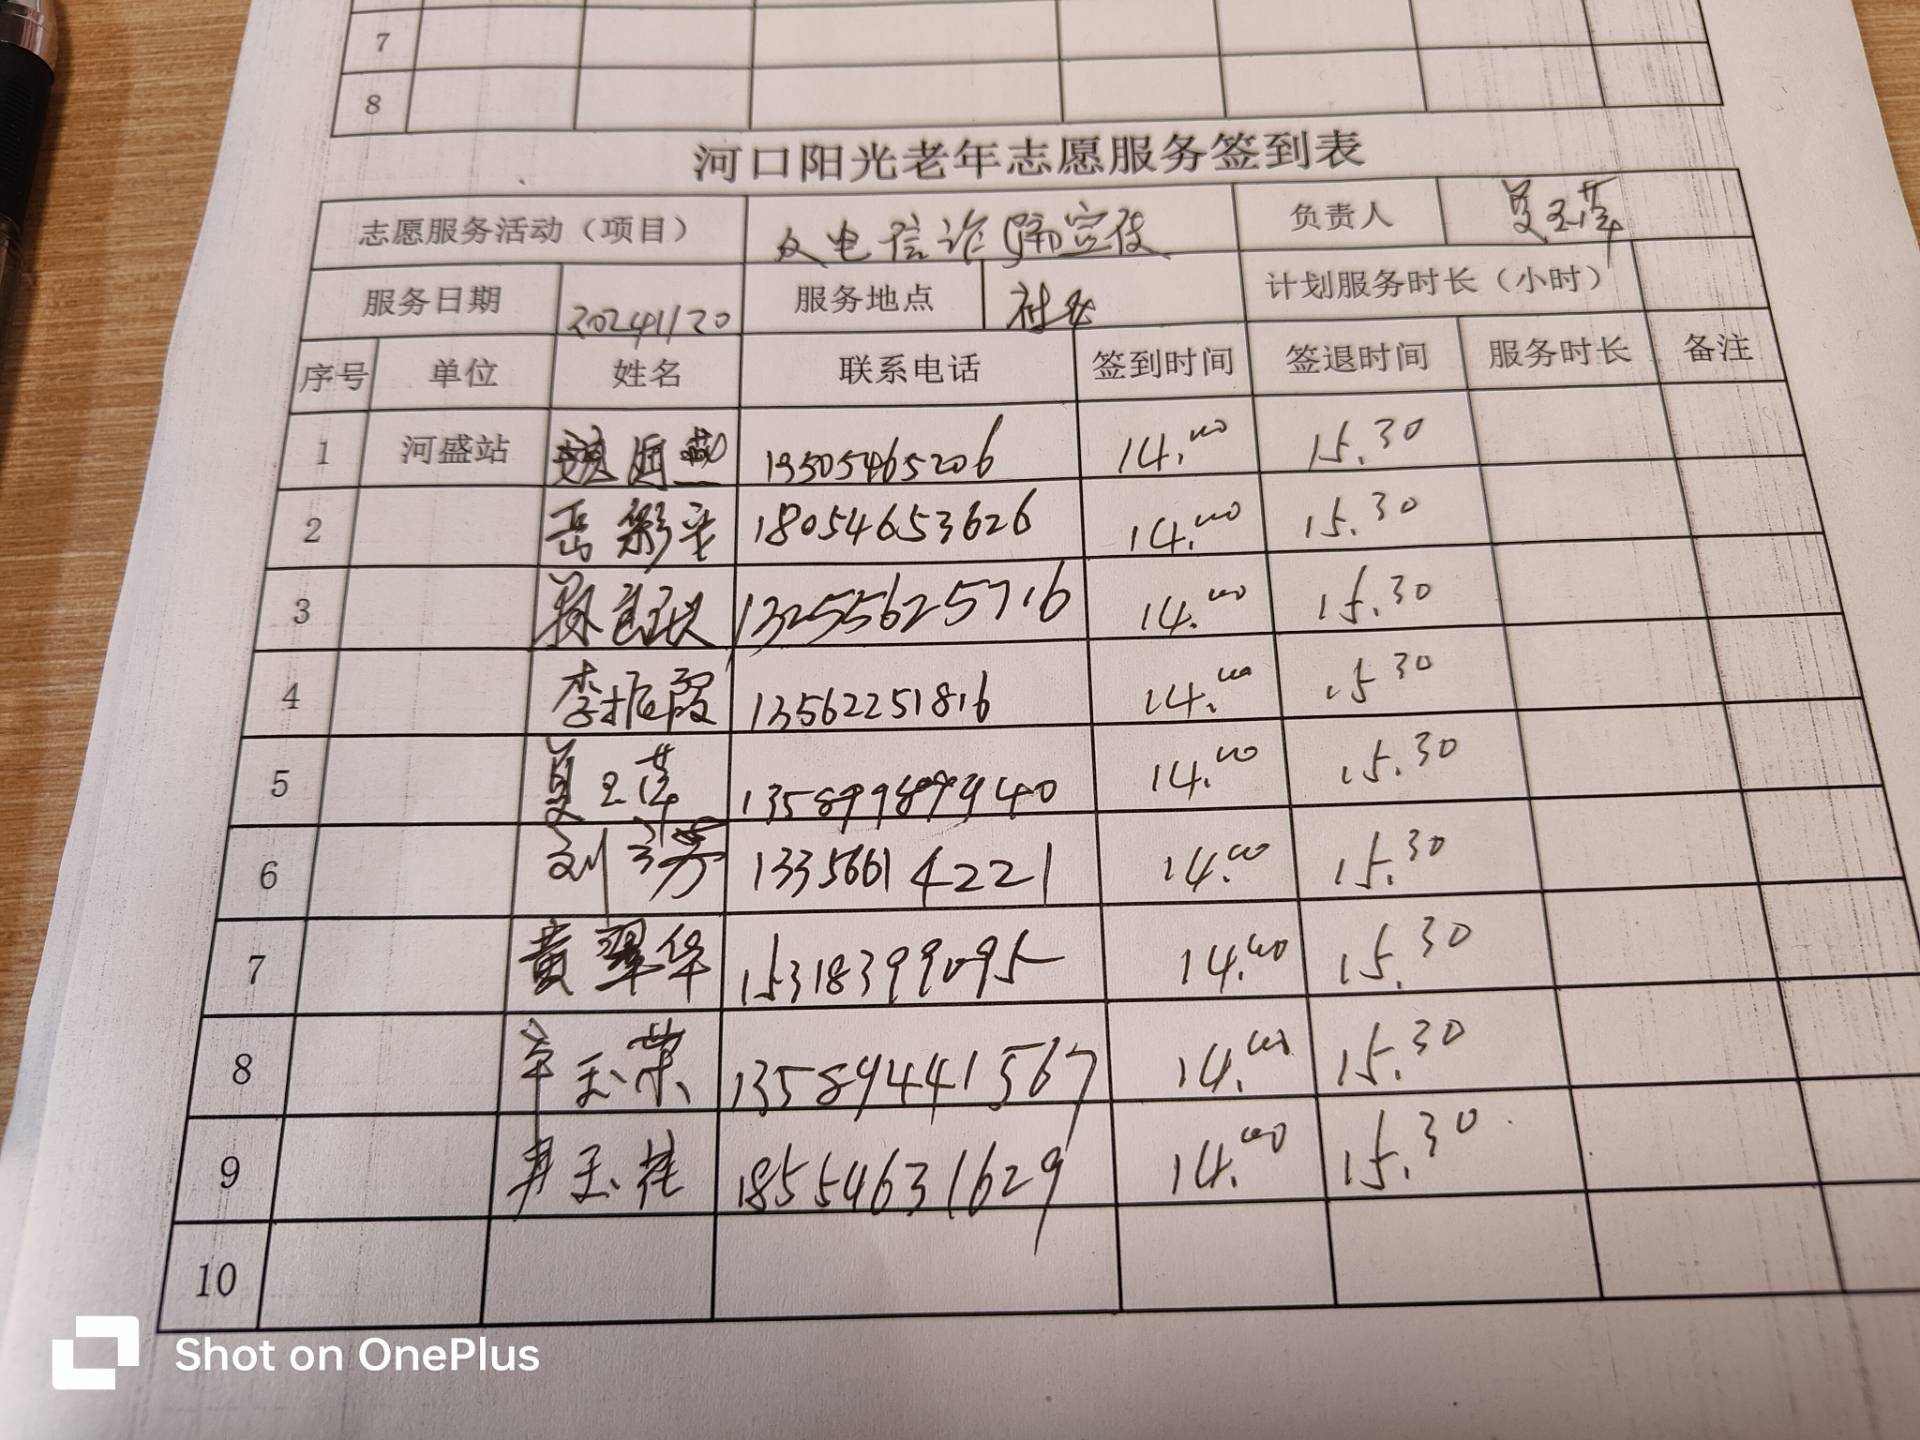 7
8
河口阳光老年志愿服务签到表
志愿服务活动（项目） 反电信诈骗宣传 负责人 夏玉萍
服务日期 20241120 服务地点 社区 计划服务时长（小时）
序号 单位 姓名 联系电话 签到时间 签退时间 服务时长 备注
1 河盛站 14.00 15.30
2 岳彩 18054653626 14.00 15.30
3 13255625716 14.00 15.30
4 李振霞 13562251816 14.00 15.30
5 夏玉萍 14.00 15.30
6 刘 芳 13356614221 14.00 15.30
7 黄翠华 15318399095 14.00 15.30
8 辛玉荣 13589441567 14.00 15.30
9 玉 18554631629 14.00 15.30
10
Shot on OnePlus